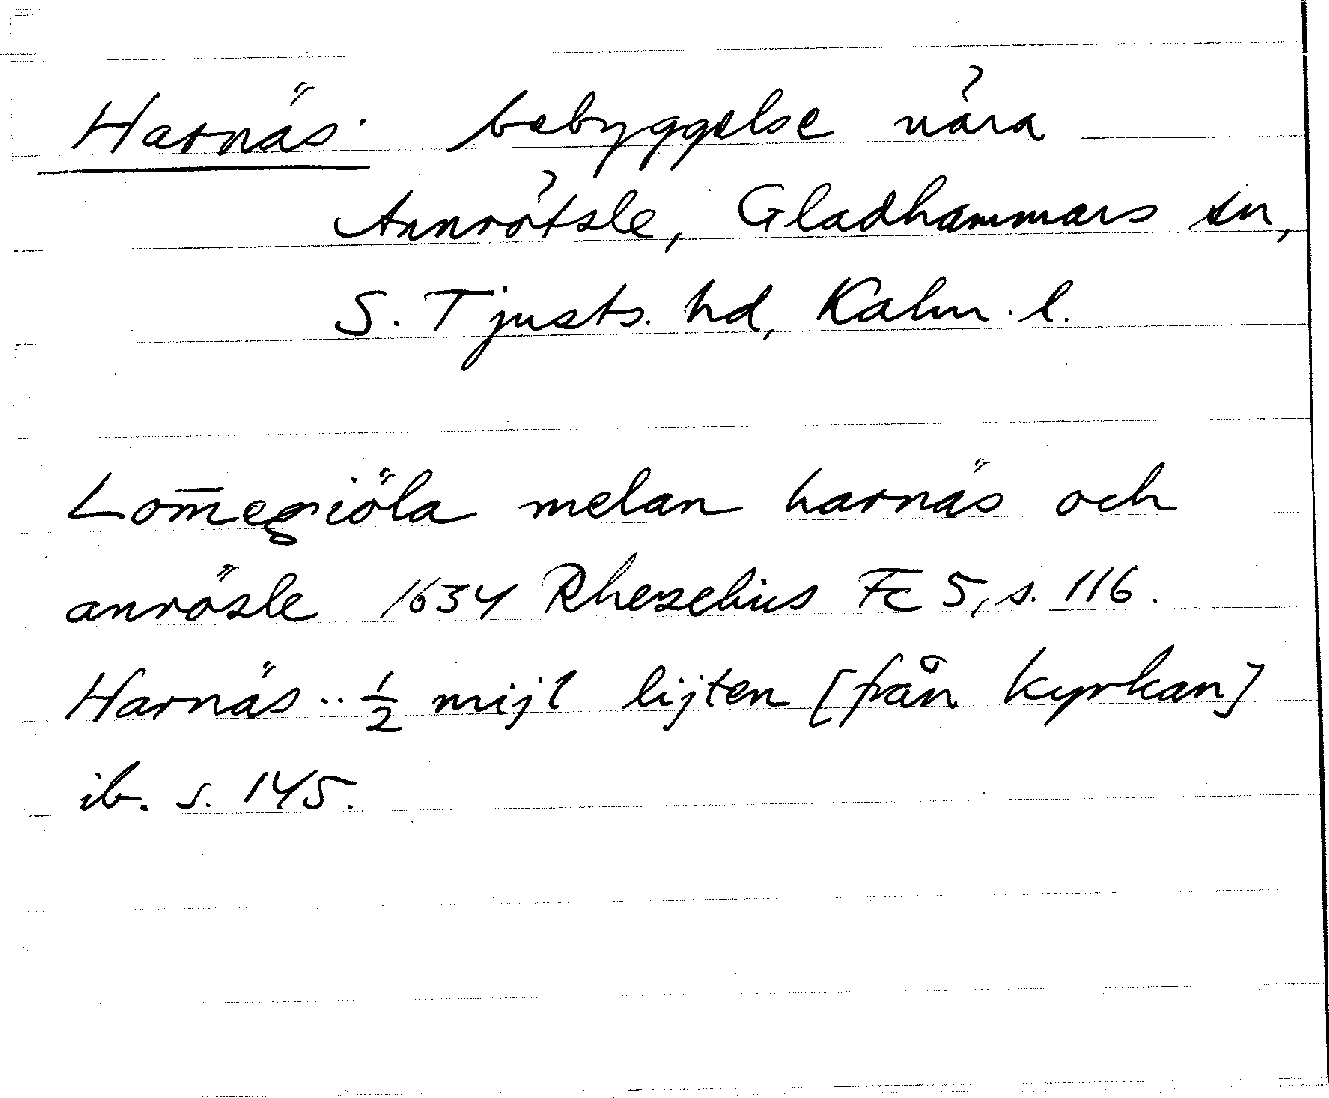 Harnäs. bebyggelse nära
Annrötsle, Gladhammars sn,
S. Tjusts. hd, Kalm. l.
Lom̄egiöla melan harnäs och
anrösle 1634 Rhezelius Fc 5, s. 116.
Harnäs .. ½ mijl lijten [från kyrkan]
ib. s. 145.